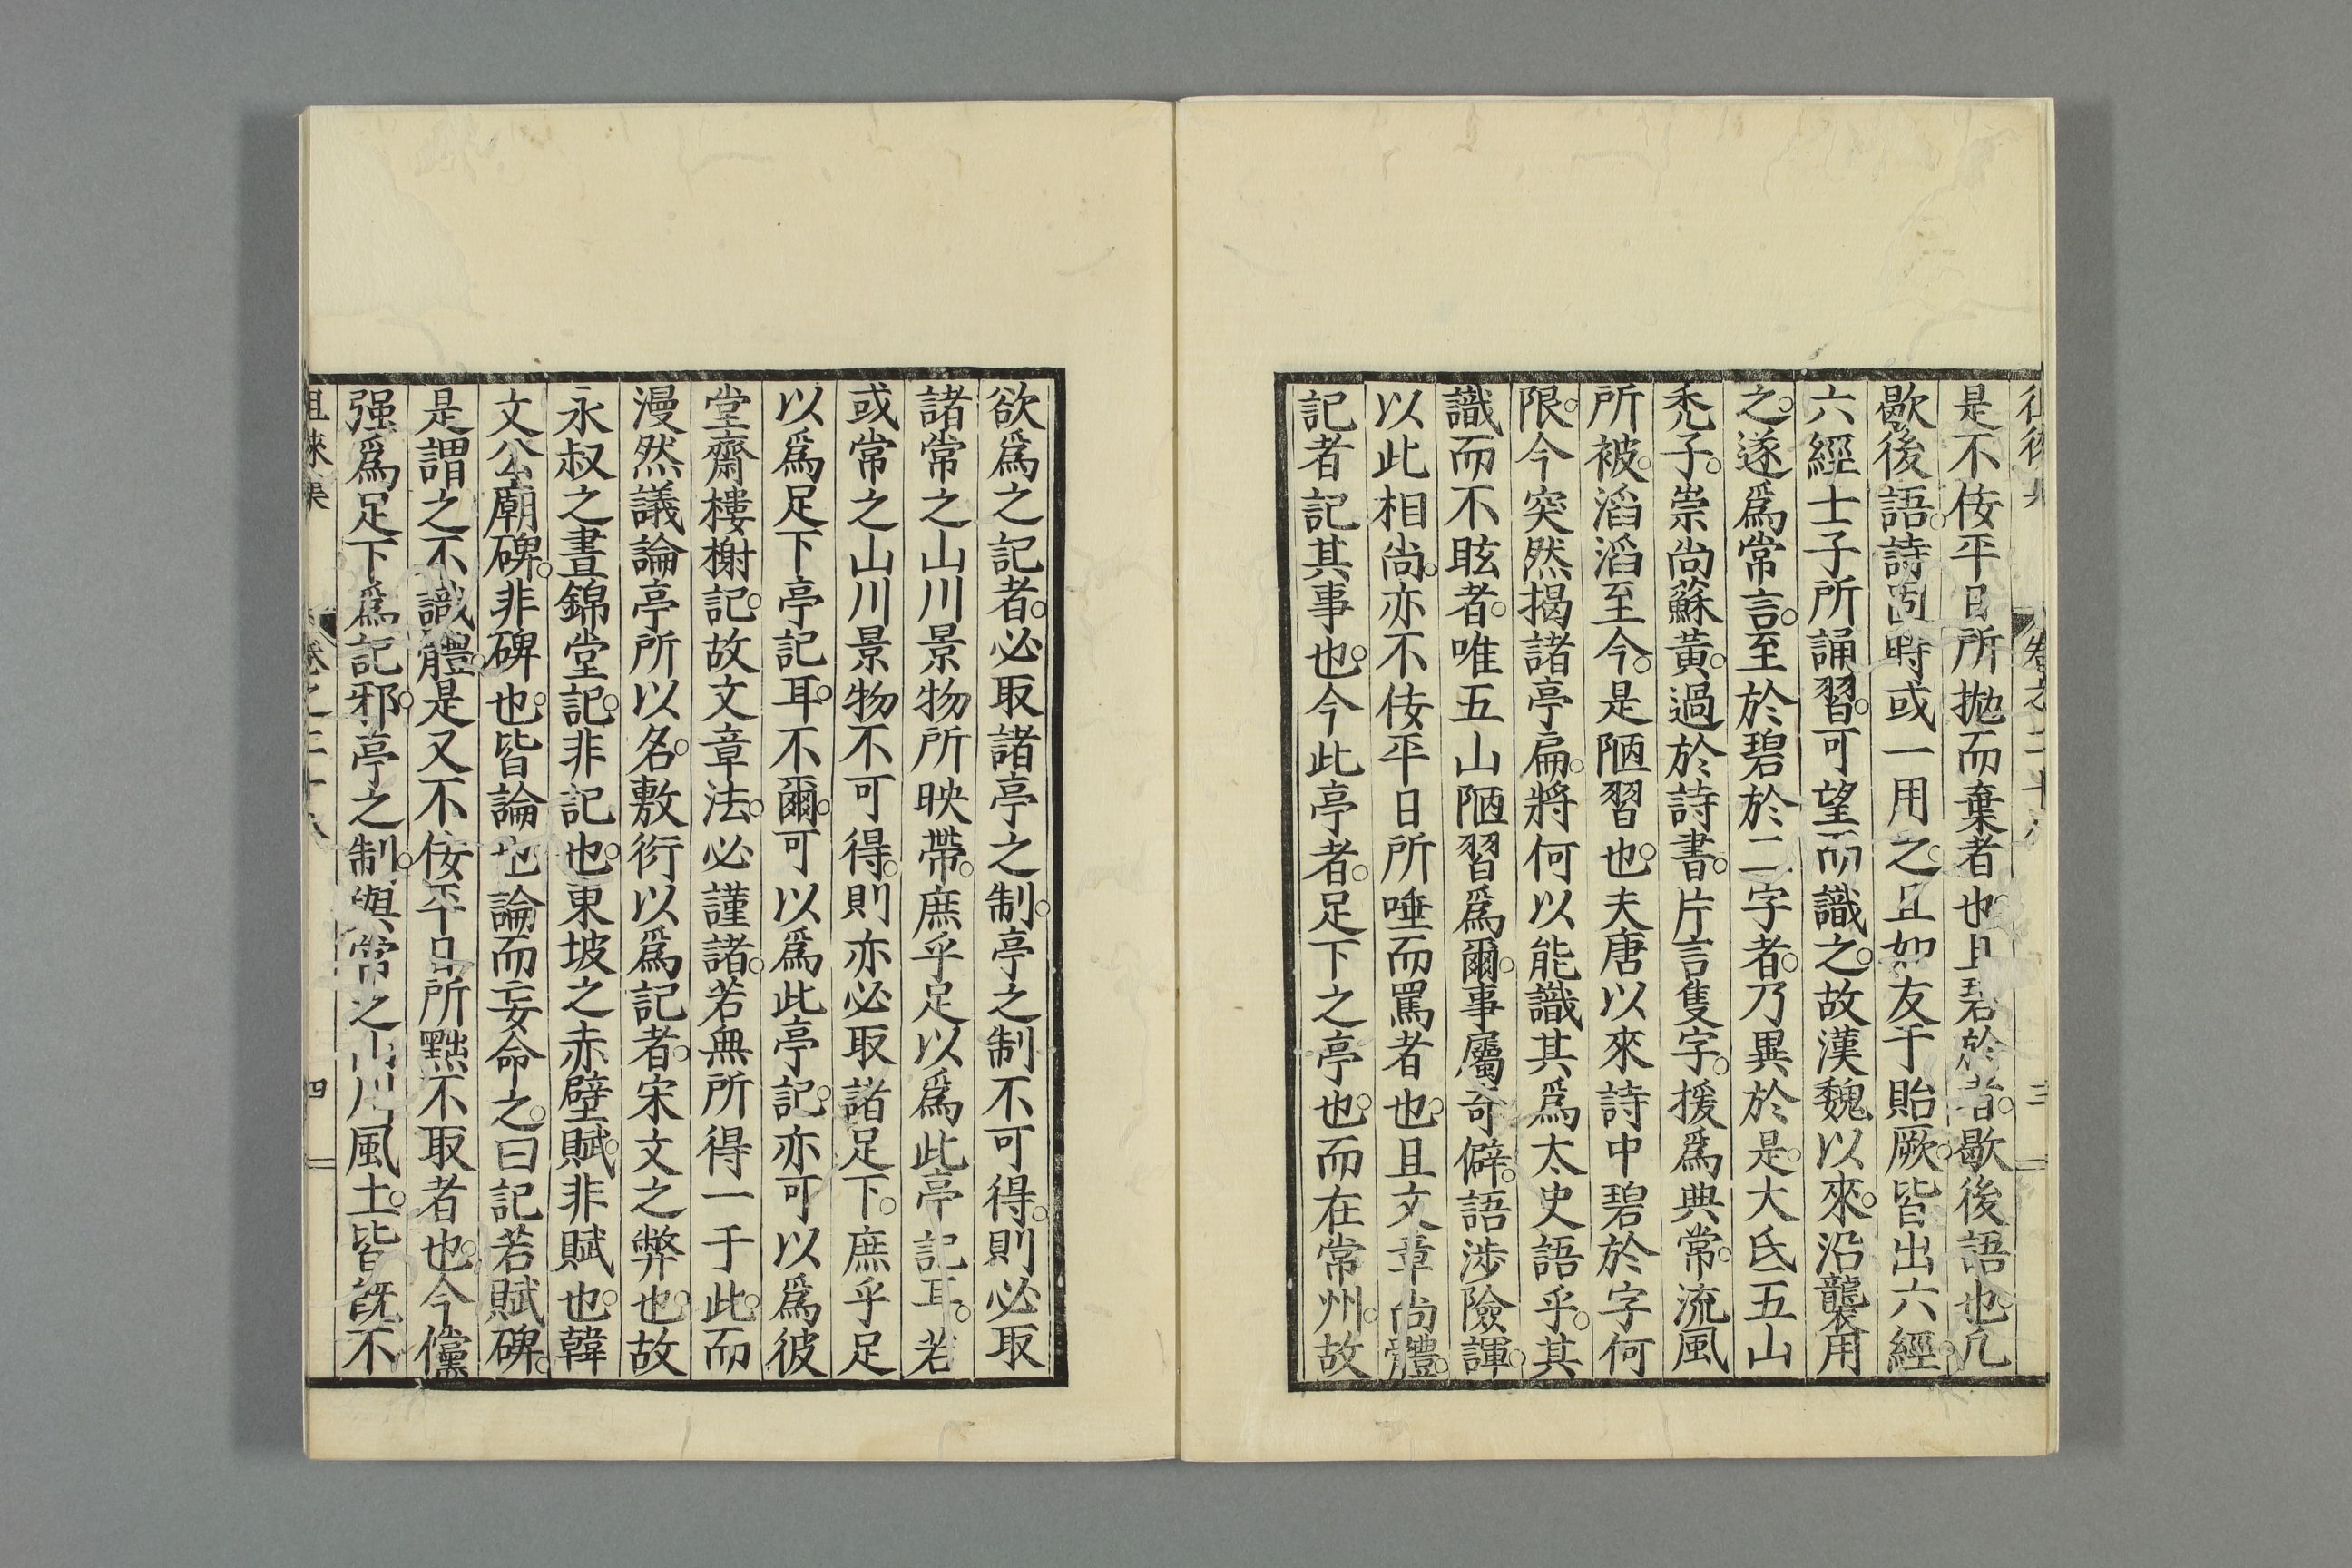 是不佞平日所拋而棄者也且碧於者。歇後語也。凡
歇後語。詩固時或一用之。且如友于貽厥。皆出六經。
六經士子所誦習。可望而識之。故漢魏以來。沿襲用
之。遂爲常言。至於碧於二字者。乃異於是。大氐五山
禿子。崇尚蘇黃。過於詩書。片言隻字。援爲典常。流風
所被。滔滔至今。是陋習也。夫唐以來詩中碧於字何
限。今突然揭諸亭扁。將何以能識其爲太史語乎。其
識而不眩者。唯五山陋習爲爾。事屬奇僻。語涉險諢。
以此相尚。亦不佞平日所唾而罵者也。且文章尚體。
記者記其事也。今此亭者。足下之亭也。而在常州。故
欲爲之記者。必取諸亭之制。亭之制不可得。則必取
諸常之山川景物所映帶。庶乎足以爲此亭記耳。若
或常之山川景物不可得。則亦必取諸足下。庶乎足
以爲足下亭記耳。不爾。可以爲此亭記。亦可以爲彼
堂齋樓榭記。故文章法。必謹諸。若無所得一于此。而
漫然議論亭所以名。敷衍以爲記者。宋文之弊也。故
永叔之晝錦堂記。非記也。東坡之赤壁賦。非賦也。韓
文公廟碑。非碑也。皆論也論而妄命之。曰記若賦碑。
是謂之不識體。是又不佞平日所黜不取者也。今儻
强爲足下爲記邪。亭之制。與常之山川風土。皆既不
徂徠集 卷之二十八 四